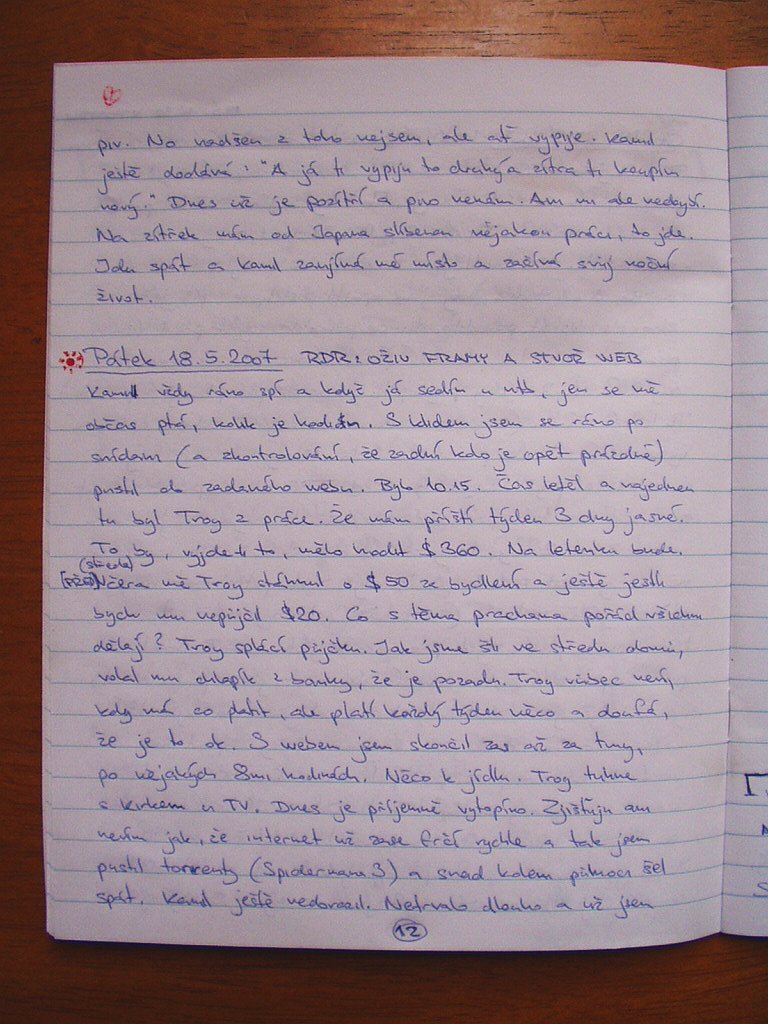 piv. No nadšen z toho nejsem, ale ať vypije. Kamil
ještě dodává: "A já ti vypiju to druhý a zítra ti koupím
nový." Dnes už je pozítří a pivo nemám. Ani mi ale nechybí.
Na zítřek mám od Japana slíbenou nějakou práci, to jde.
Jdu spát a Kamil zaujímá mé místo a začíná svůj noční
život.
Pátek 18.5.2007 RDR: OŽIV FRAMY A STVOŘ WEB
Kamil vždy ráno spí a když já sedím u ntb, jen se mě
občas ptá, kolik je hodin. S klidem jsem se ráno po
snídani (a zkontrolování, že zadní kolo je opět prázdné)
pustil do zadaného webu. Bylo 10.15. Čas letěl a najednou
tu byl Troy z práce. Že mám příští týden 3 dny jasné.
To by, vyjde-li to, mělo hodit $360. Na letenku bude.
(středa)
[PŘED]Včera mě Troy stáhnul o $50 za bydlení a ještě jestli
bych mu nepůjčil $20. Co s těma prachama pořád všichni
dělají? Troy splácí půjčku. Jak jsme šli ve středu domů,
volal mu chlapík z banky, že je pozadu. Troy vůbec neví,
kdy má co platit, ale platí každý týden něco a doufá,
že je to ok. S webem jsem skončil zas až za tmy,
po nějakých 8mi hodinách. Něco k jídlu. Troy tuhne
s Kirkem u TV. Dnes je příjemně vytopíno. Zjišťuju ani
nevím jak, že internet už zase frčí rychle a tak jsem
pustil torrenty (Spidermana 3) a snad kolem půlnoci šel
spát. Kamil ještě nedorazil. Netrvalo dlouho a už jsem
12